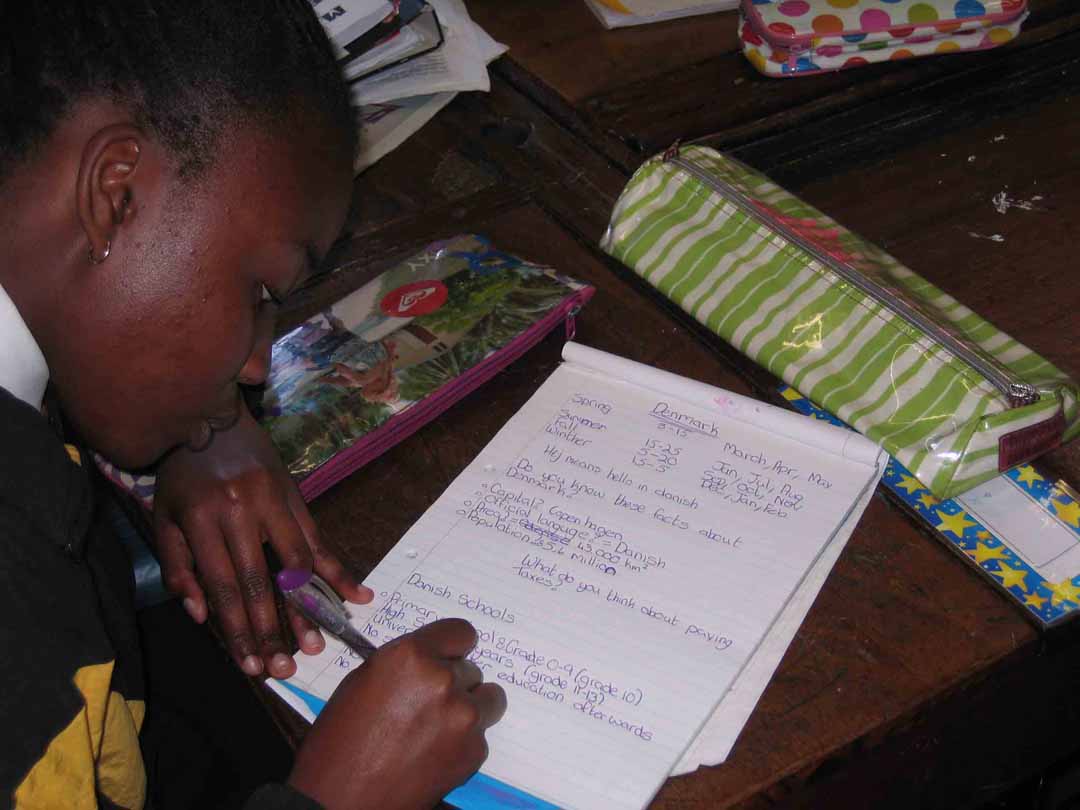 Denmark
Spring 5-15 March, Apr, May
Summer 15-25 Jun, Jul, Aug
Fall 5-20 Sep, Oct, Nov
Winther Dec, Jan, Feb
Hej means hello in danish
Do you know these facts about
Denmark?
Capital? Copenhagen
Official languge? = Danish
43.000 km²
Population? 5,6 million
What do you think about paying
taxes?
Danish Schools
Primary school? Grade 0-9 (grade 10)
High years (grade 11-13)
Univer education afterwards
No
No
M